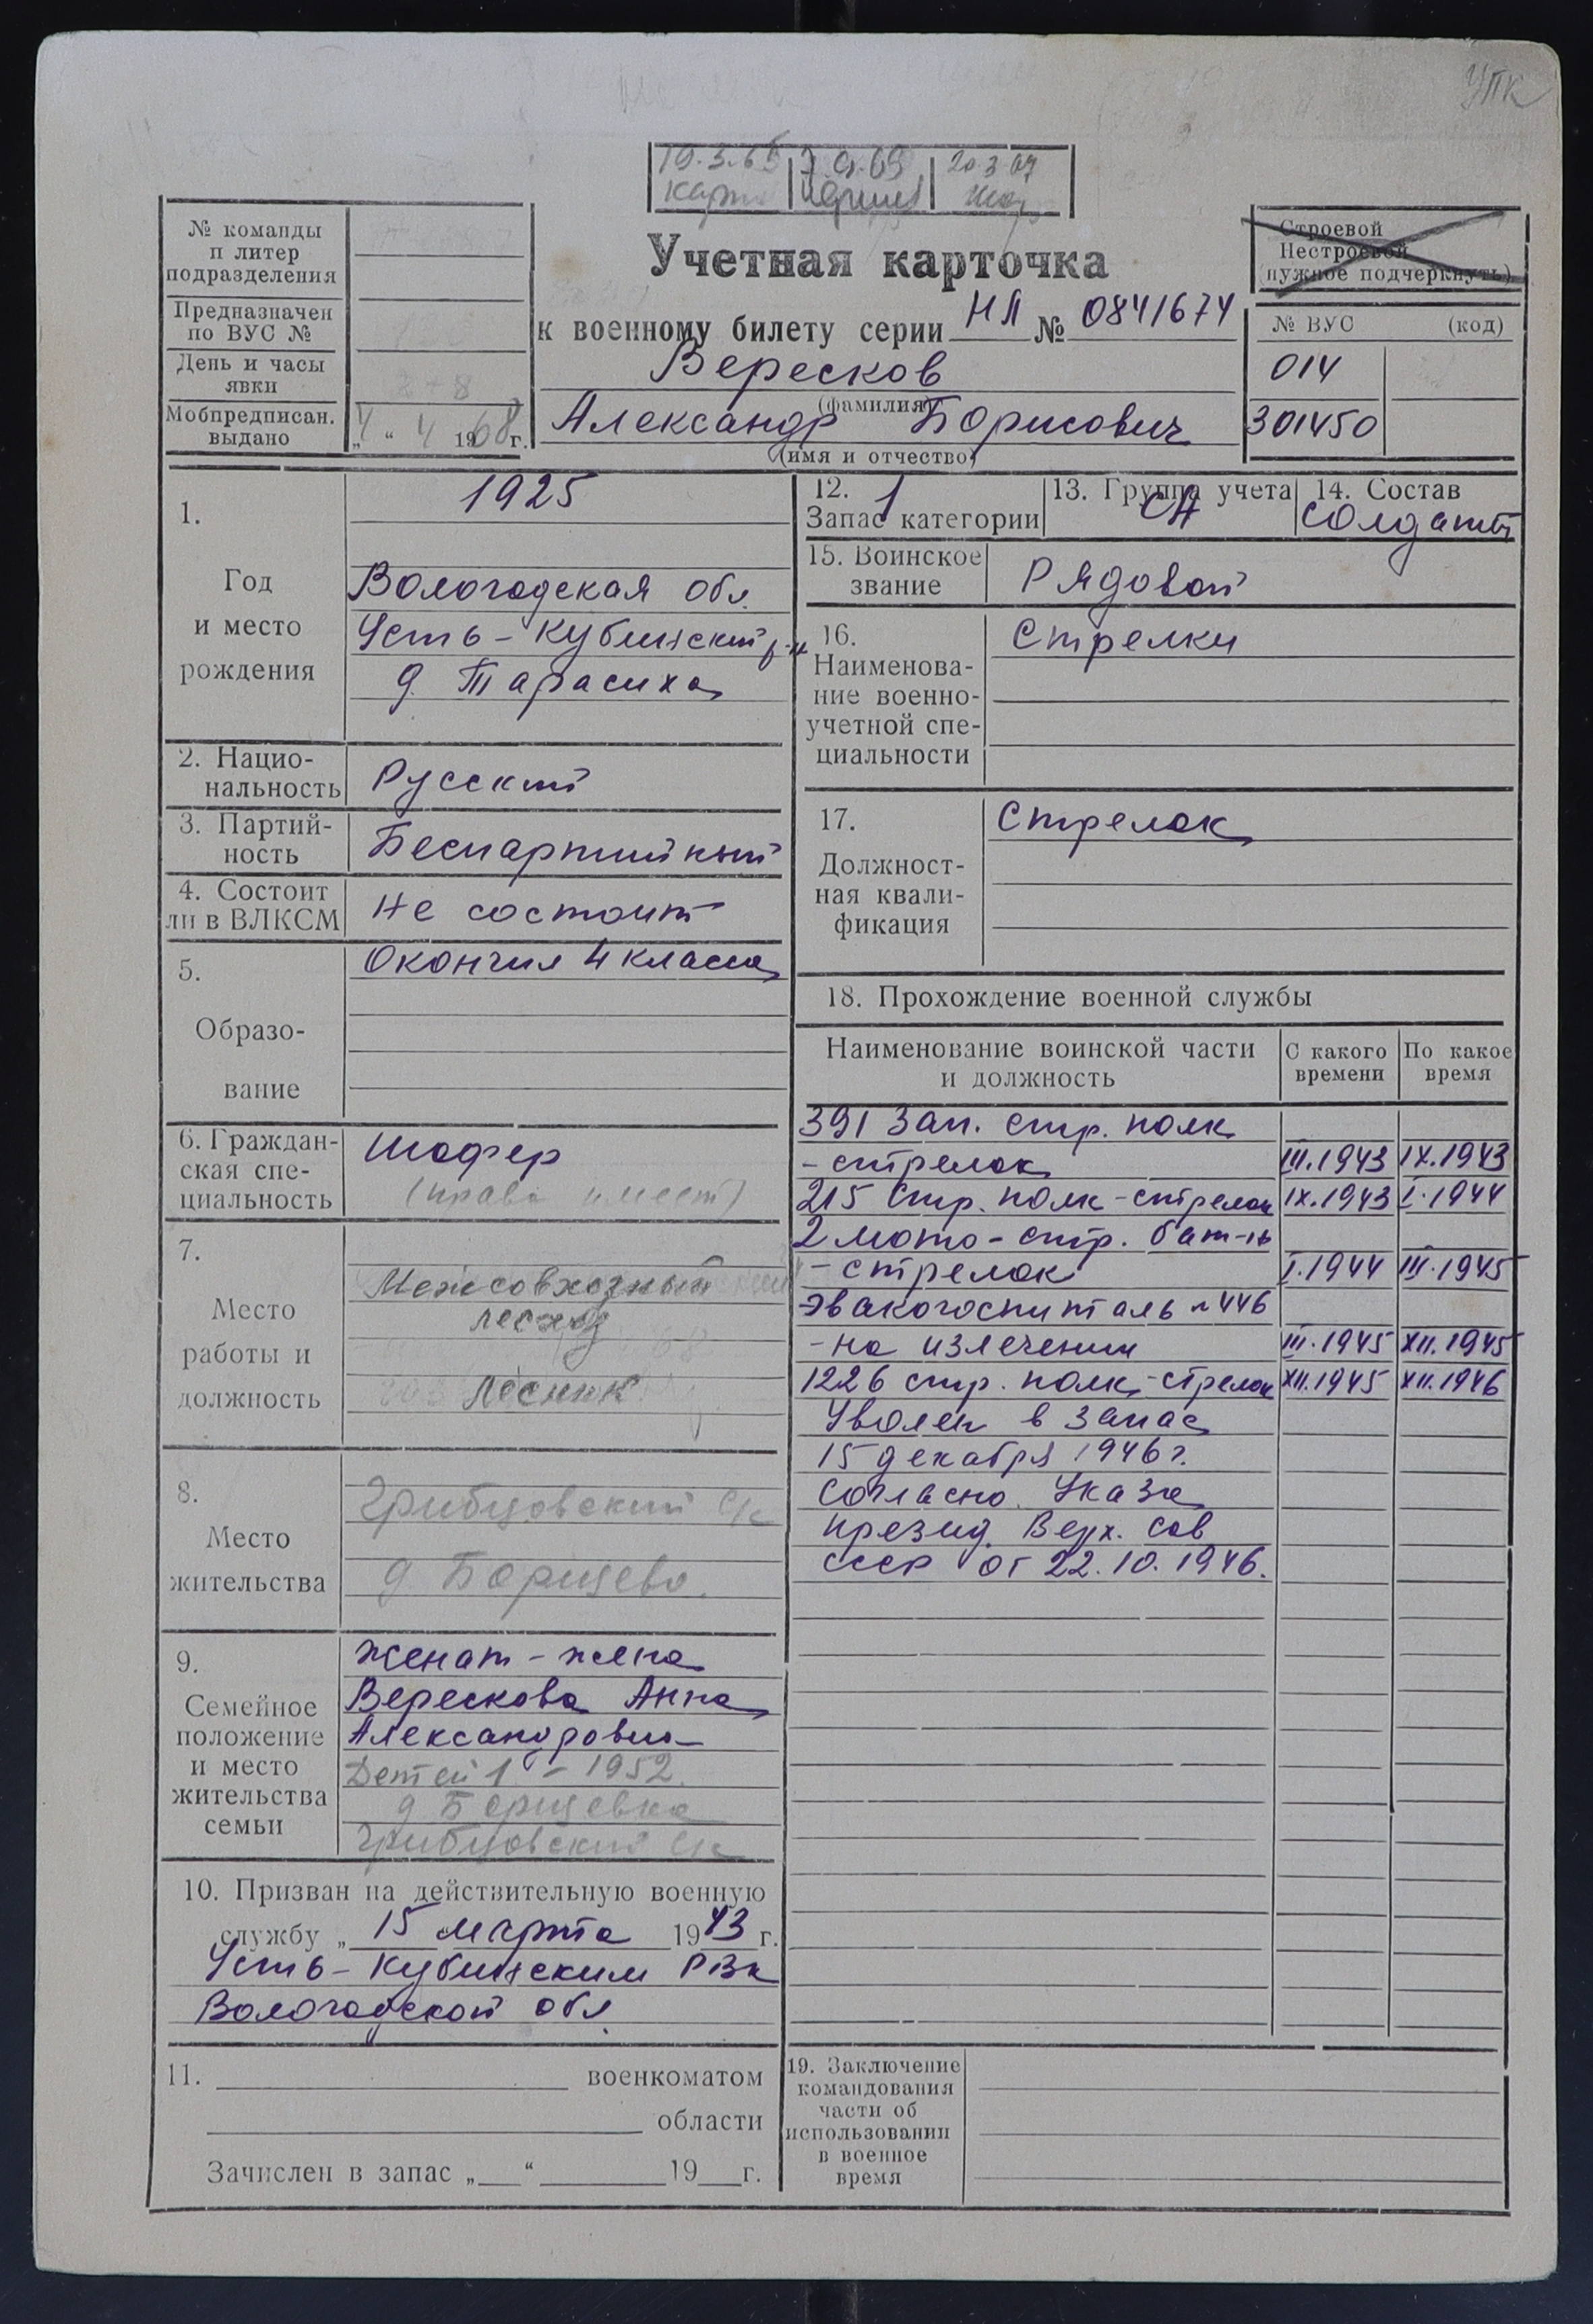 УПК
19.3.65 7.9.65 20.3.67
№ команды
и литер
подразделения
Предназначен
по ВУС №
День и часы
явки
Мобпредписан.
выдано
„4“ 4 1968 г.
Учетная карточка
к военному билету серии НЛ № 0841674
Вересков
(фамилия)
Александр Борисович
(имя и отчество)
Строевой
Нестроевой
(нужное подчеркнуть)
№ ВУС (код)
014
301450
1.
Год
и место
рождения
1925
Вологодская обл.
Усть-Кубинский р-н
д. Тарасиха
2. Нацио-
нальность
Русский
3. Партий-
ность
Беспартийный
4. Состоит
ли в ВЛКСМ
Не состоит
5.
Образо-
вание
Окончил 4 класса
6. Граждан-
ская спе-
циальность
Шофер
(права имеет)
7.
Место
работы и
должность
Межсовхозный
лесхоз
Лесник
8.
Место
жительства
Грибцовский с/с
д Борщево.
9.
Семейное
положение
и место
жительства
семьи
Женат - жена
Верескова Анна
Александровна
Детей 1 - 1952.
д Борщевка
Грибцовский с/с
10. Призван на действительную военную
службу „ 15 марта 1943 г.
Усть-Кубинским РВК
Вологодской обл.
11. военкоматом
области
Зачислен в запас „ “ 19 г.
12. 1
Запас категории
13. Группа учета
СА
14. Состав
солдаты
15. Воинское
звание
Рядовой
16.
Наименова-
ние военно-
учетной спе-
циальности
Стрелки
17.
Должност-
ная квали-
фикация
Стрелок
18. Прохождение военной службы
Наименование воинской части
и должность
С какого
времени
По какое
время
391 зап. стр. полк
- стрелок III.1943 IX.1943
215 стр. полк - стрелок IX.1943 I.1944
2 мото-стр. бат-н
- стрелок I.1944 III.1945
Эвакогоспиталь №446
- на излечении III.1945 XII.1945
1226 стр. полк - стрелок XII.1945 XII.1946
Уволен в запас
15 декабря 1946 г.
согласно Указа
презид. Верх. Сов
СССР от 22.10.1946.
19. Заключение
командования
части об
использовании
в военное
время